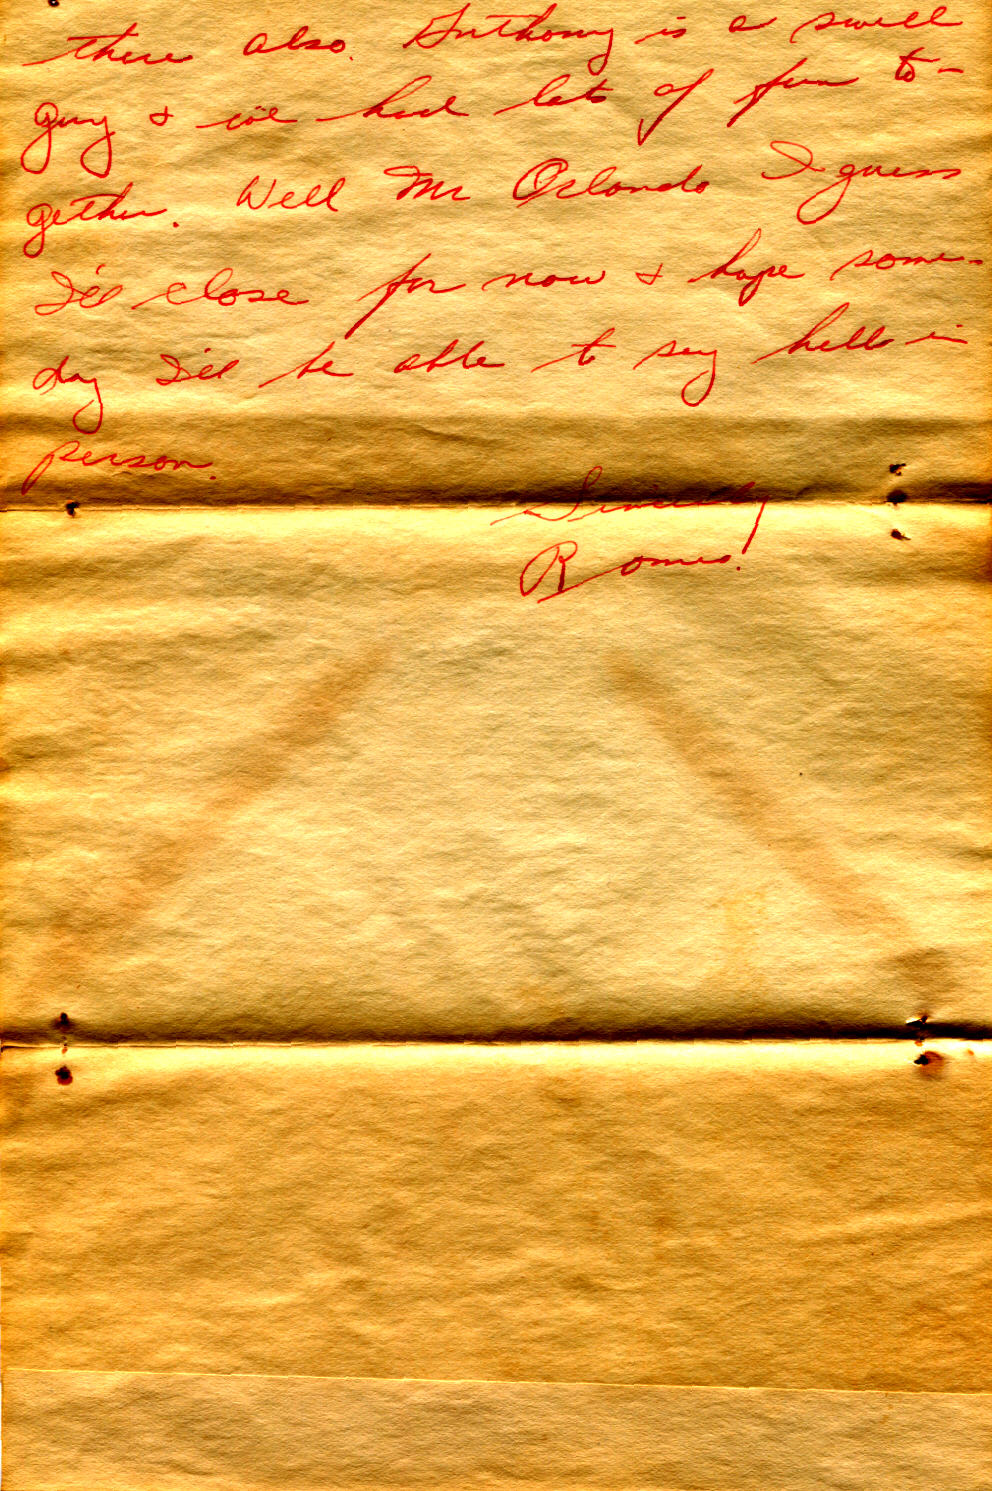 there also. Anthony is a swell
guy & we've had lots of fun to-
gether. Well Mr Orlando I guess
I'll close for now & hope some-
day I'll be able to say hello in
person.
Sincerely
Romeo.